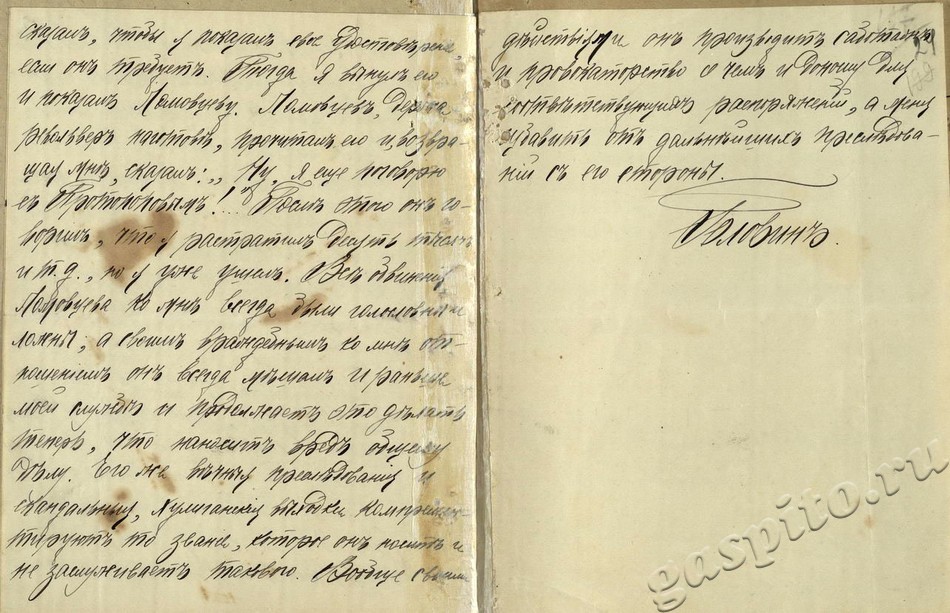 сказалъ, чтобы я показалъ свое удостовѣреніе,
если онъ требуетъ. Тогда я вынулъ его
и показалъ Ломовцеву. Ломовцевъ, держа
револьверъ наготовѣ, прочиталъ его и возвра-
щая мнѣ, сказалъ: „Ну, я еще поговорю
съ Протопоповымъ!“ Послѣ этого онъ го-
ворилъ, что я растратилъ десять тысячъ
и т.д., но я уже ушелъ. Всѣ обвиненія
Ломовцева ко мнѣ всегда были голословны и
ложны; а своимъ враждебнымъ ко мнѣ от-
ношеніемъ онъ всегда мѣшалъ и раньше
моей службѣ и продолжаетъ это дѣлать
теперь, что наноситъ вредъ общему
дѣлу. Его же вѣчныя преслѣдованія и
скандальныя, хулиганскія выходки компроме-
тируютъ то званіе, которое онъ носитъ и
не заслуживаетъ такового. Вообще своими
дѣйствіями онъ производитъ саботажъ
и провокаторство о чемъ и доношу для
соотвѣтствующихъ распоряженій, а меня
избавить отъ дальнѣйшихъ преслѣдова-
ній съ его стороны.
Головинъ.
gaspito.ru